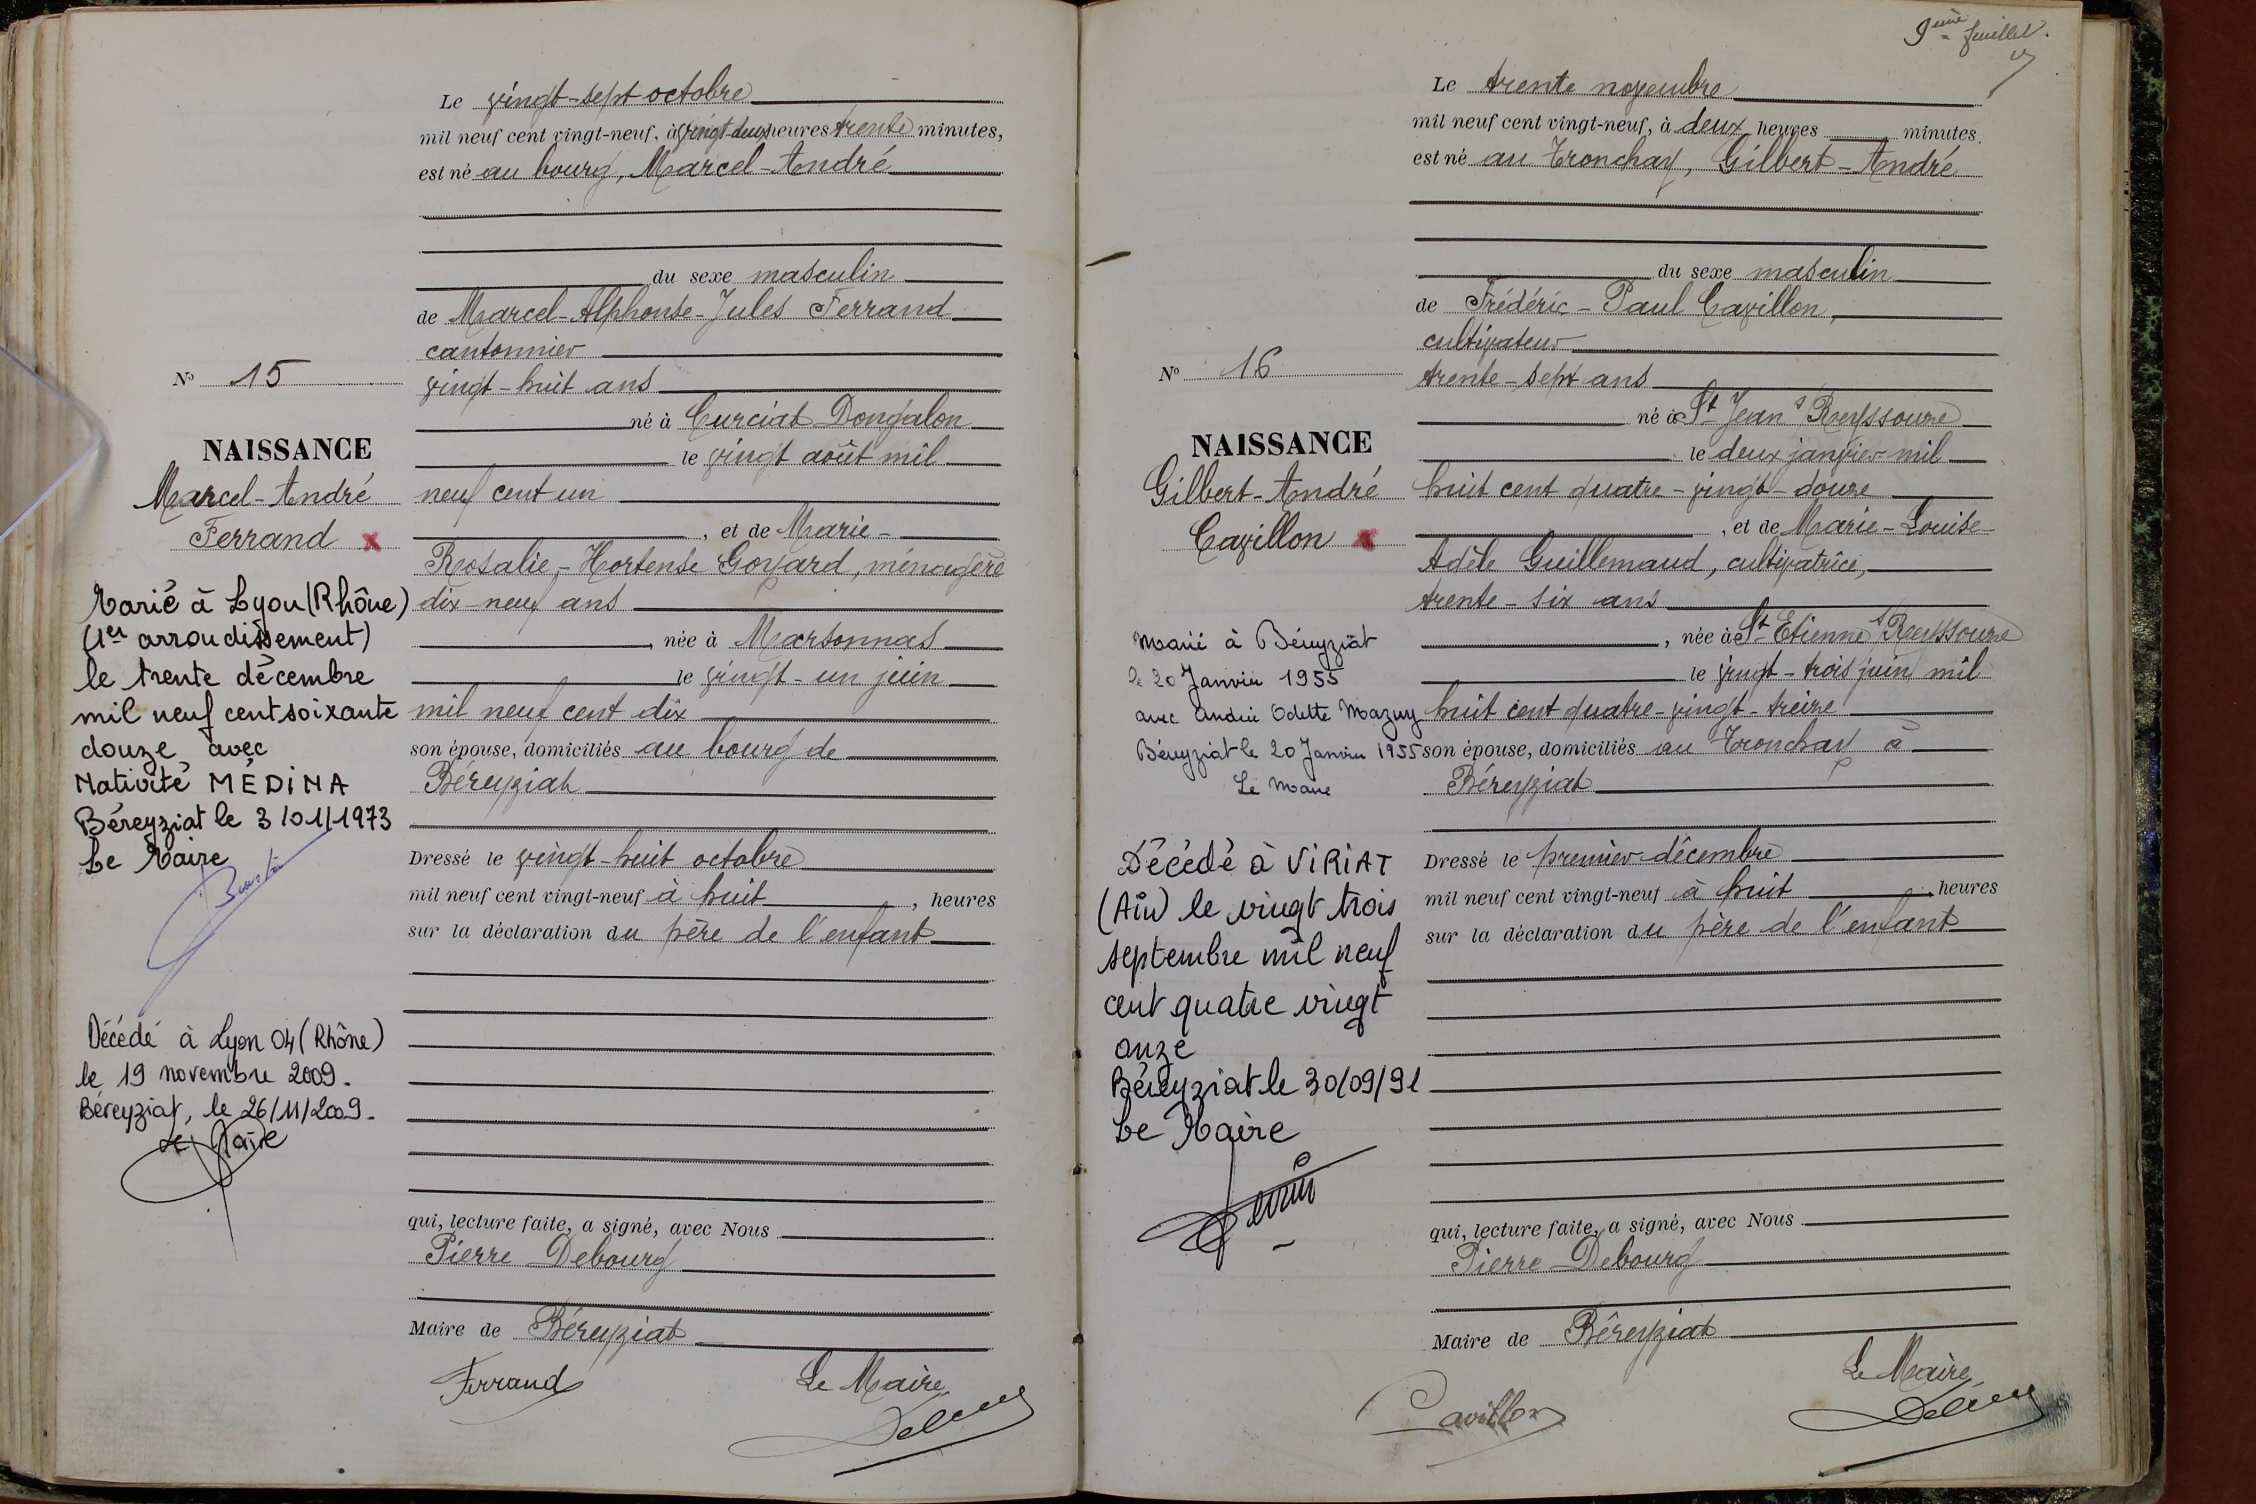 Le vingt-sept octobre
mil neuf cent vingt-neuf, à vingt-deux heures trente minutes,
est né au bourg, Marcel-André
du sexe masculin
de Marcel-Alphonse-Jules Ferrand
cantonnier
vingt-huit ans
né à Curciat Dongalon
le vingt août mil
neuf cent un
, et de Marie-
Rosalie-Hortense Goyard, ménagère
dix-neuf ans
, née à Marsonnas
le vingt-un juin
mil neuf cent dix
son épouse, domiciliés au bourg de
Béreyziat
Dressé le vingt-huit octobre
mil neuf cent vingt-neuf à huit, heures
sur la déclaration du père de l'enfant
qui, lecture faite, a signé, avec Nous
Pierre Debourg
Maire de Béreyziat
Ferrand Le Maire
No 15
NAISSANCE
Marcel-André
Ferrand x
Marié à Lyon (Rhône)
(1er arrondissement)
le trente décembre
mil neuf cent soixante
douze avec
Nativité MÉDINA
Béreyziat le 3/01/1973
Le Maire
Décédé à Lyon 04 (Rhône)
le 19 novembre 2009.
Béreyziat, le 26/11/2009.
Le Maire
9ème feuillet.
Le trente novembre
mil neuf cent vingt-neuf, à deux heures minutes.
est né au Tronchay, Gilbert-André
du sexe masculin
de Frédéric-Paul Cavillon,
cultivateur
trente-sept ans
né à St Jean s Reyssouze
le deux janvier mil
huit cent quatre-vingt-douze
, et de Marie-Louise-
Adèle Guillemaud, cultivatrice,
trente-six ans
, née à St Etienne s Reyssouze
le vingt-trois juin mil
huit cent quatre-vingt-treize
son épouse, domiciliés au Tronchay à
Béreyziat
Dressé le premier décembre
mil neuf cent vingt-neuf à huit, heures
sur la déclaration du père de l'enfant
qui, lecture faite, a signé, avec Nous
Pierre Debourg
Maire de Béreyziat
Le Maire
Cavillon
No 16
NAISSANCE
Gilbert-André
Cavillon x
Marié à Béreyziat
le 20 Janvier 1955
avec Andrée Odette Mazuy
Béreyziat le 20 Janvier 1955
Le Maire
Décédé à VIRIAT
(Ain) le vingt trois
septembre mil neuf
cent quatre vingt
onze
Béreyziat le 30/09/91
Le Maire